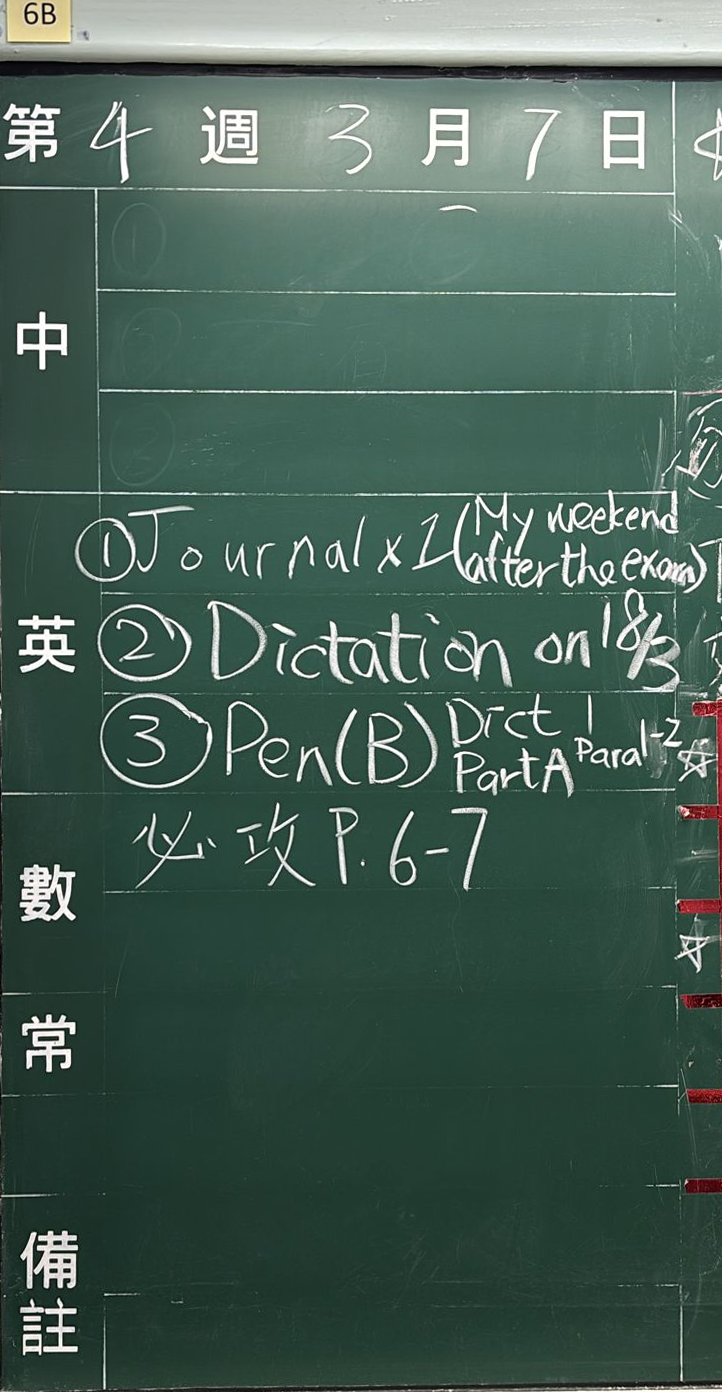 6B
第 4 週 3 月 7 日
中
英
①Journal x 1 (My weekend
after the exam)
② Dictation on 18/3
③ Pen(B) Dict 1
Part A Para 1-2
數
必攻 P. 6-7
常
備
註